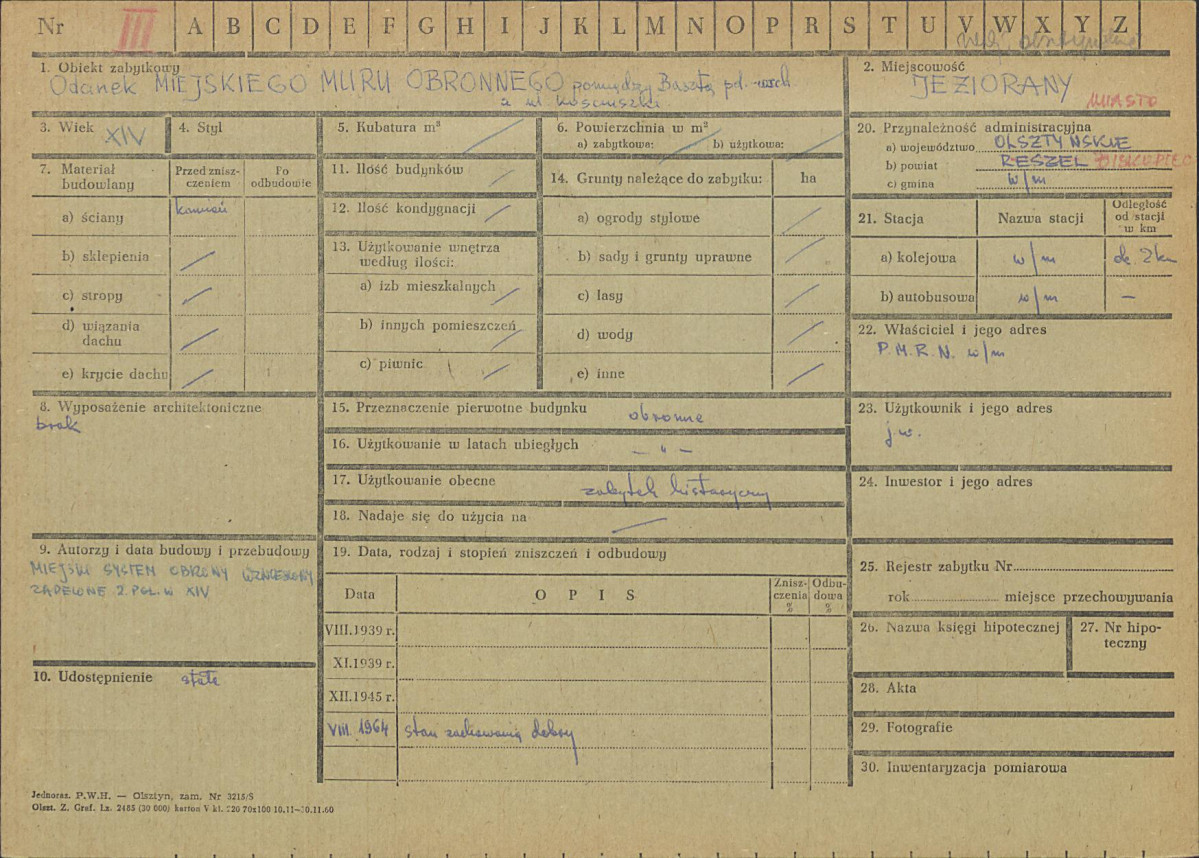 Nr III A B C D E F G H I J K L M N O P R S T U V W X Y Z
1. Obiekt zabytkowy
Odcinek MIEJSKIEGO MURU OBRONNEGO pomiędzy Basztą pd.-wsch
a ul. Kościuszki
2. Miejscowość
JEZIORANY
MIASTO
3. Wiek XIV
4. Styl
5. Kubatura m³
6. Powierzchnia w m²
a) zabytkowa: b) użytkowa:
7. Materiał budowlany
Przed zniszczeniem
Po odbudowie
a) ściany kamień
b) sklepienia
c) stropy
d) wiązania dachu
e) krycie dachu
8. Wyposażenie architektoniczne
brak
9. Autorzy i data budowy i przebudowy
MIEJSKI SYSTEM OBRONY WZNIESIONY
2. POŁ. W XIV
10. Udostępnienie stałe
11. Ilość budynków
12. Ilość kondygnacji
13. Użytkowanie wnętrza
według ilości:
a) izb mieszkalnych
b) innych pomieszczeń
c) piwnic
14. Grunty należące do zabytku: ha
a) ogrody stylowe
b) sady i grunty uprawne
c) lasy
d) wody
e) inne
15. Przeznaczenie pierwotne budynku obronne
16. Użytkowanie w latach ubiegłych — „ —
17. Użytkowanie obecne zabytek historyczny
18. Nadaje się do użycia na
19. Data, rodzaj i stopień zniszczeń i odbudowy
Data OPIS Zniszczenia % Odbudowa %
VIII.1939 r.
XI.1939 r.
XII.1945 r.
VIII. 1964 stan zachowania dobry
20. Przynależność administracyjna
a) województwo OLSZTYŃSKIE
b) powiat RESZEL BISKUPIEC
c) gmina w/m
21. Stacja Nazwa stacji Odległość od stacji w km
a) kolejowa w/m ok. 2km
b) autobusowa w/m —
22. Właściciel i jego adres
P.M.R.N. w/m
23. Użytkownik i jego adres
j.w.
24. Inwestor i jego adres
25. Rejestr zabytku Nr
rok miejsce przechowywania
26. Nazwa księgi hipotecznej
27. Nr hipoteczny
28. Akta
29. Fotografie
30. Inwentaryzacja pomiarowa
Jednoraz. P.W.H. — Olsztyn, zam. Nr 3215/S
Olszt. Z. Graf. Lz. 2485 (30 000) karton V kl. 220 70x100 10.11—30.11.60